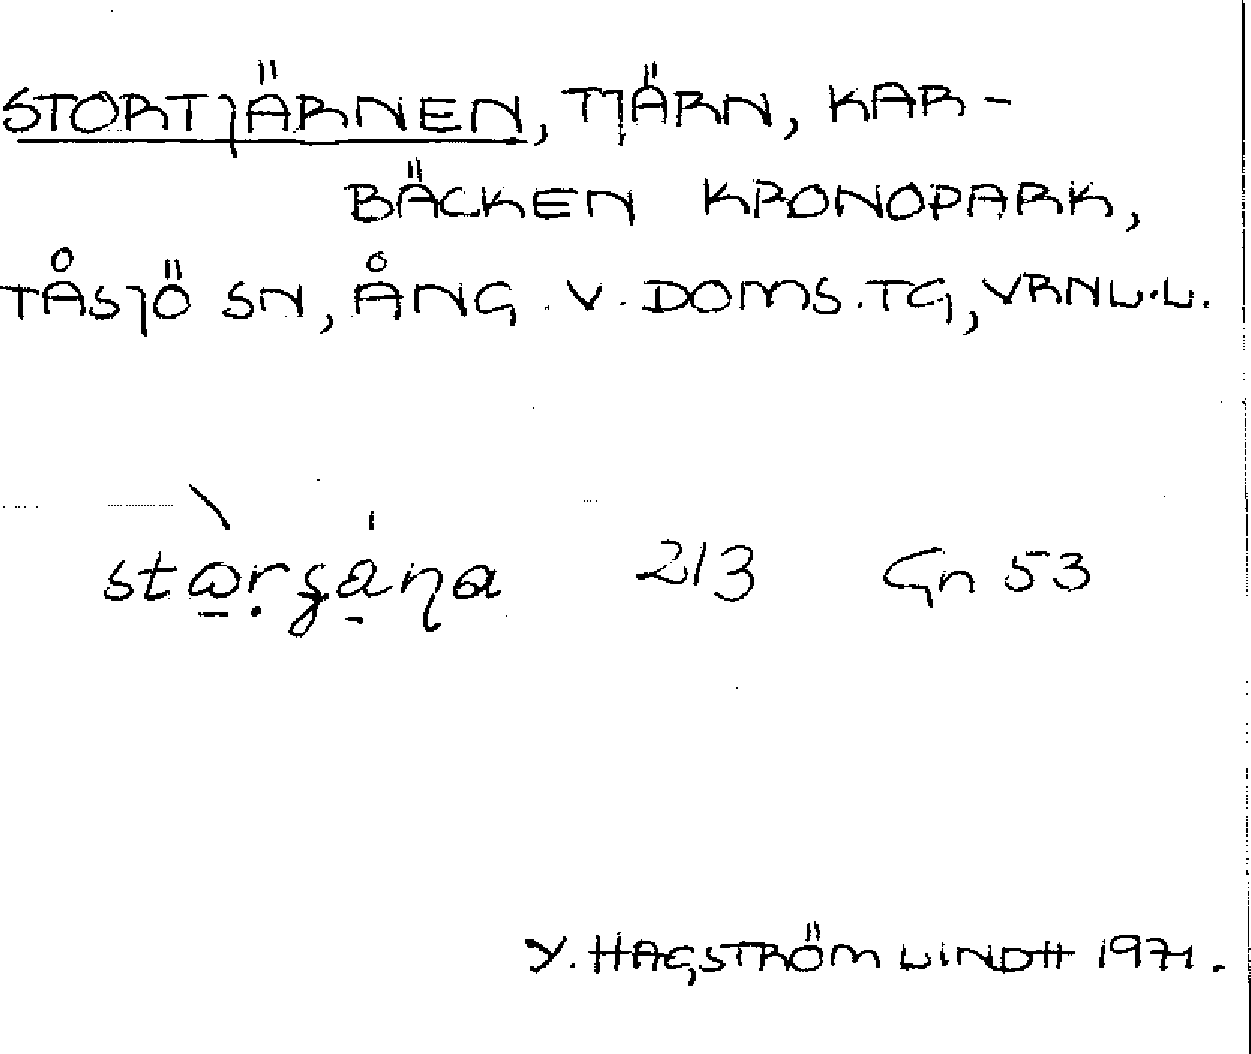 STORTJÄRNEN, TJÄRN, KAR-
BÄCKEN KRONOPARK,
TÅSJÖ SN, ÅNG. V. DOMS. TG, VRNL.L.
213 Gn 53
Y. HAGSTRÖM LINDH 1971.